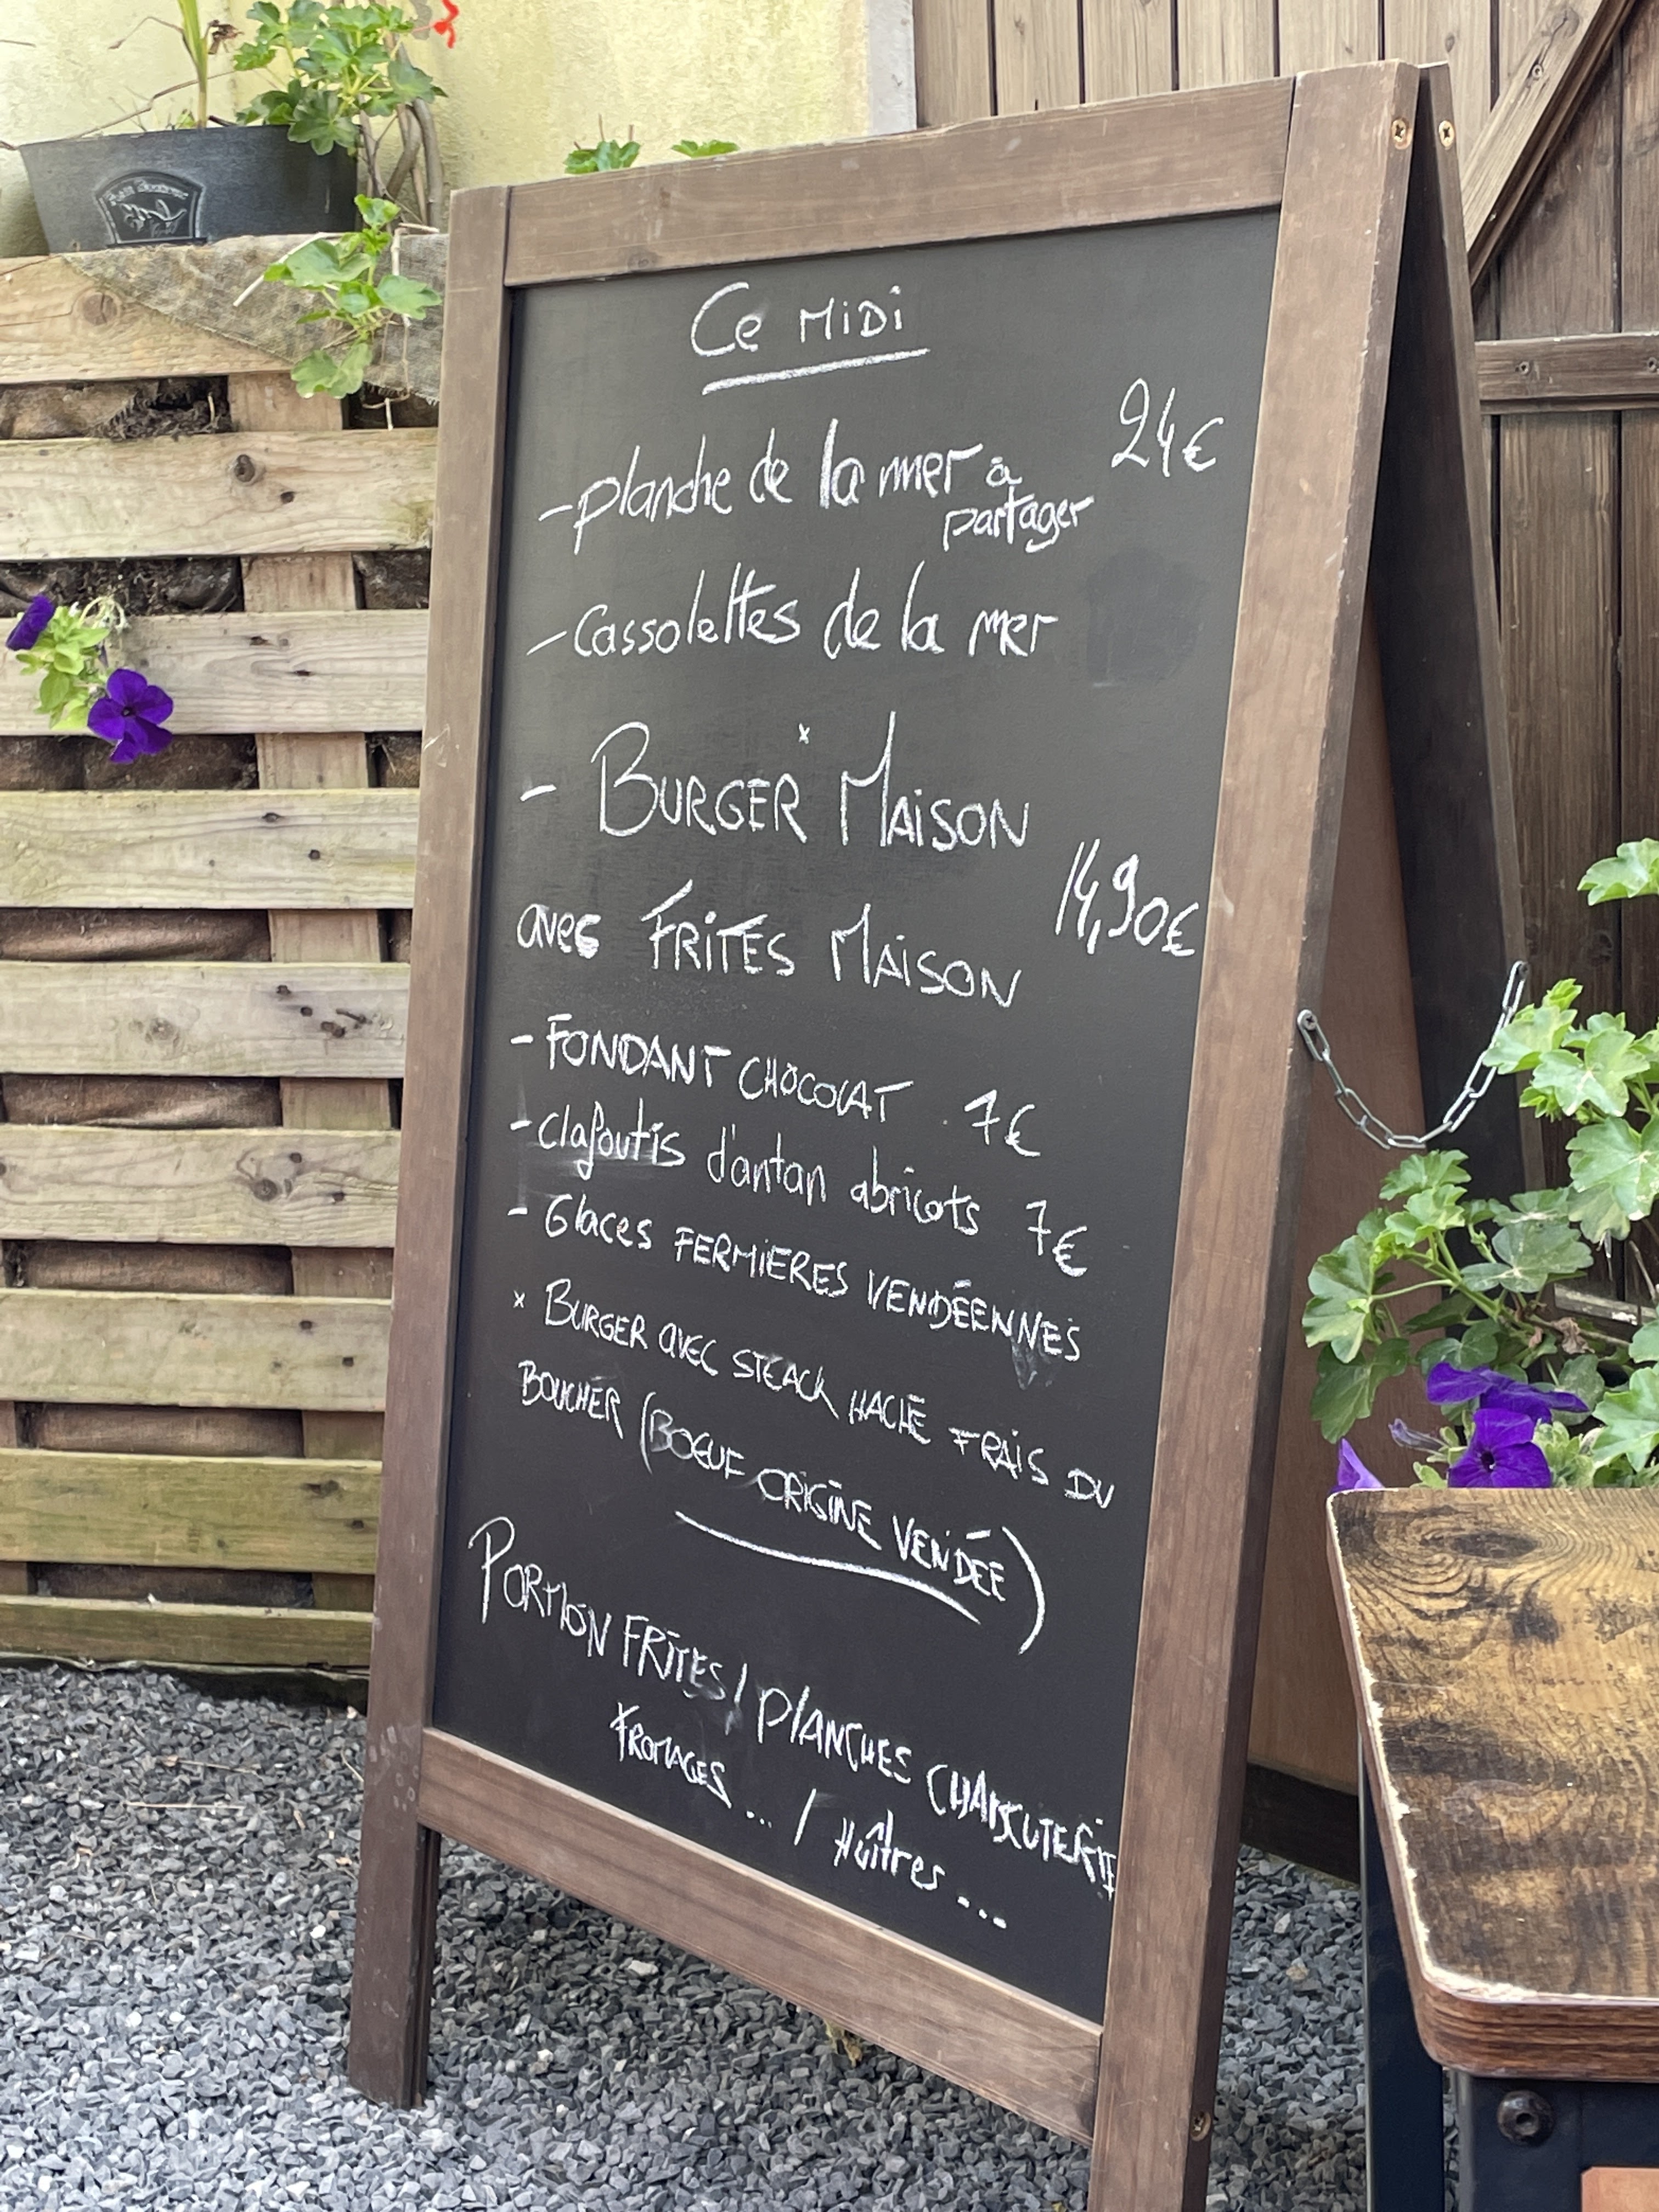 Ce MiDi
- planche de la mer à 24€
partager
- Cassolettes de la mer
- BURGER* MAiSON
14,90€
avec FRiTES MAiSON
- FONDANT CHOCOLAT . 7€
- clafoutis d'antan abricots 7€
- Glaces FERMIERES VENDÉENNES
x BURGER AVEC STEACK HACHÉ FRAiS DU
BOUCHER (BOEUF ORIGINE VENDÉE)
PORTION FRITES / PLANCHES CHARCUTERIE
FROMAGES... / HUîtres ...